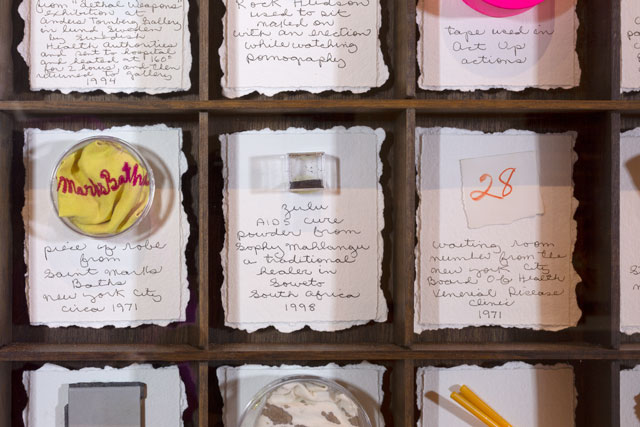 from "Lethal Weapons"
exhibition at
Anders Tornberg Gallery
in Lund Sweden
by Swedish
Health Authorities
and sent to hospital
and heated at 160°
for 2 hours and then
returned to gallery
1994
Rock Hudson
used to sit
naked on
with an erection
while watching
pornography
tape used in
Act Up
actions
Mark's Baths
piece of robe
from
Saint Marks
Baths
New York City
circa 1971
Zulu
AIDS cure
powder from
Sophy Mahlangu
a traditional
healer in
Soweto
South Africa
1998
28
waiting room
number from the
New York City
Board of Health
Venereal Disease
Clinic
1971